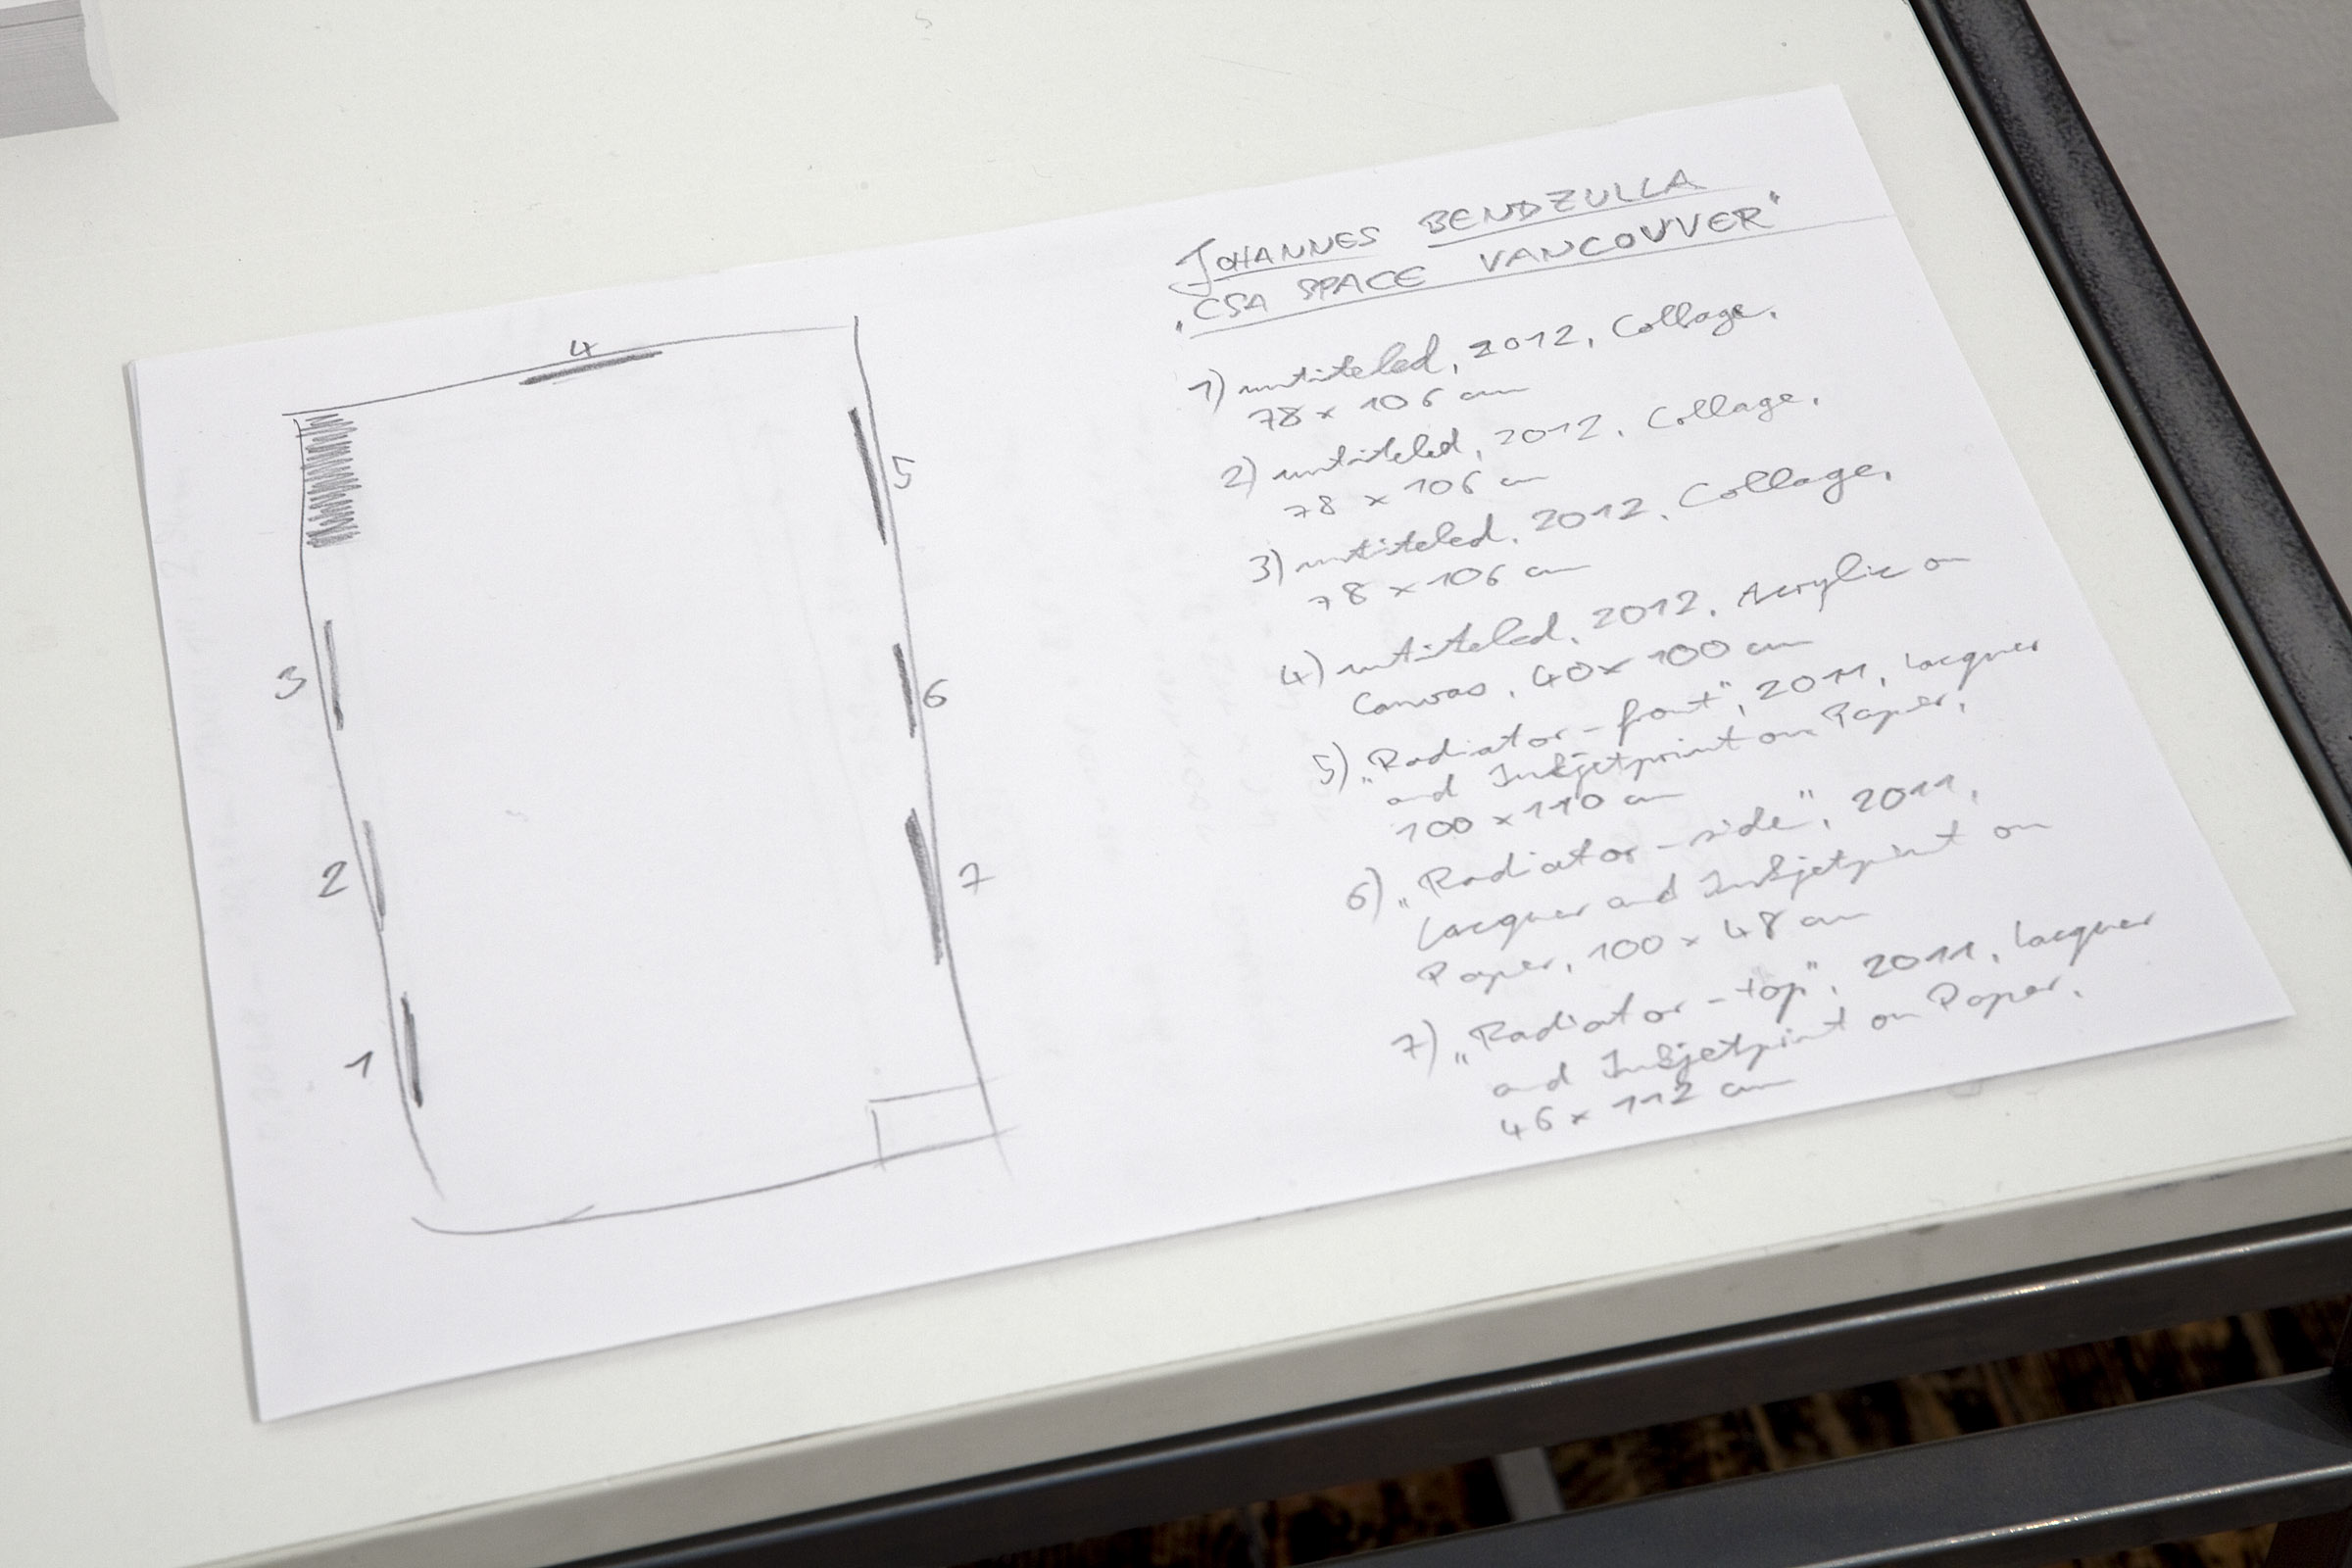 JOHANNES BENDZULLA
„CSA SPACE VANCOUVER"
1) untiteled, 2012, Collage,
78 x 106 cm
2) untiteled, 2012, Collage,
78 x 106 cm
3) untiteled, 2012, Collage,
78 x 106 cm
4) untiteled, 2012, Acrylic on
Canvas, 40 x 100 cm
5) „Radiator - front", 2011, lacquer
and Inkjetprint on Paper,
100 x 110 cm
6) „Radiator - side", 2011,
lacquer and Inkjetprint on
Paper, 100 x 48 cm
7) „Radiator - top", 2011, lacquer
and Inkjetprint on Paper,
46 x 112 cm
4
5
3
6
2
7
1